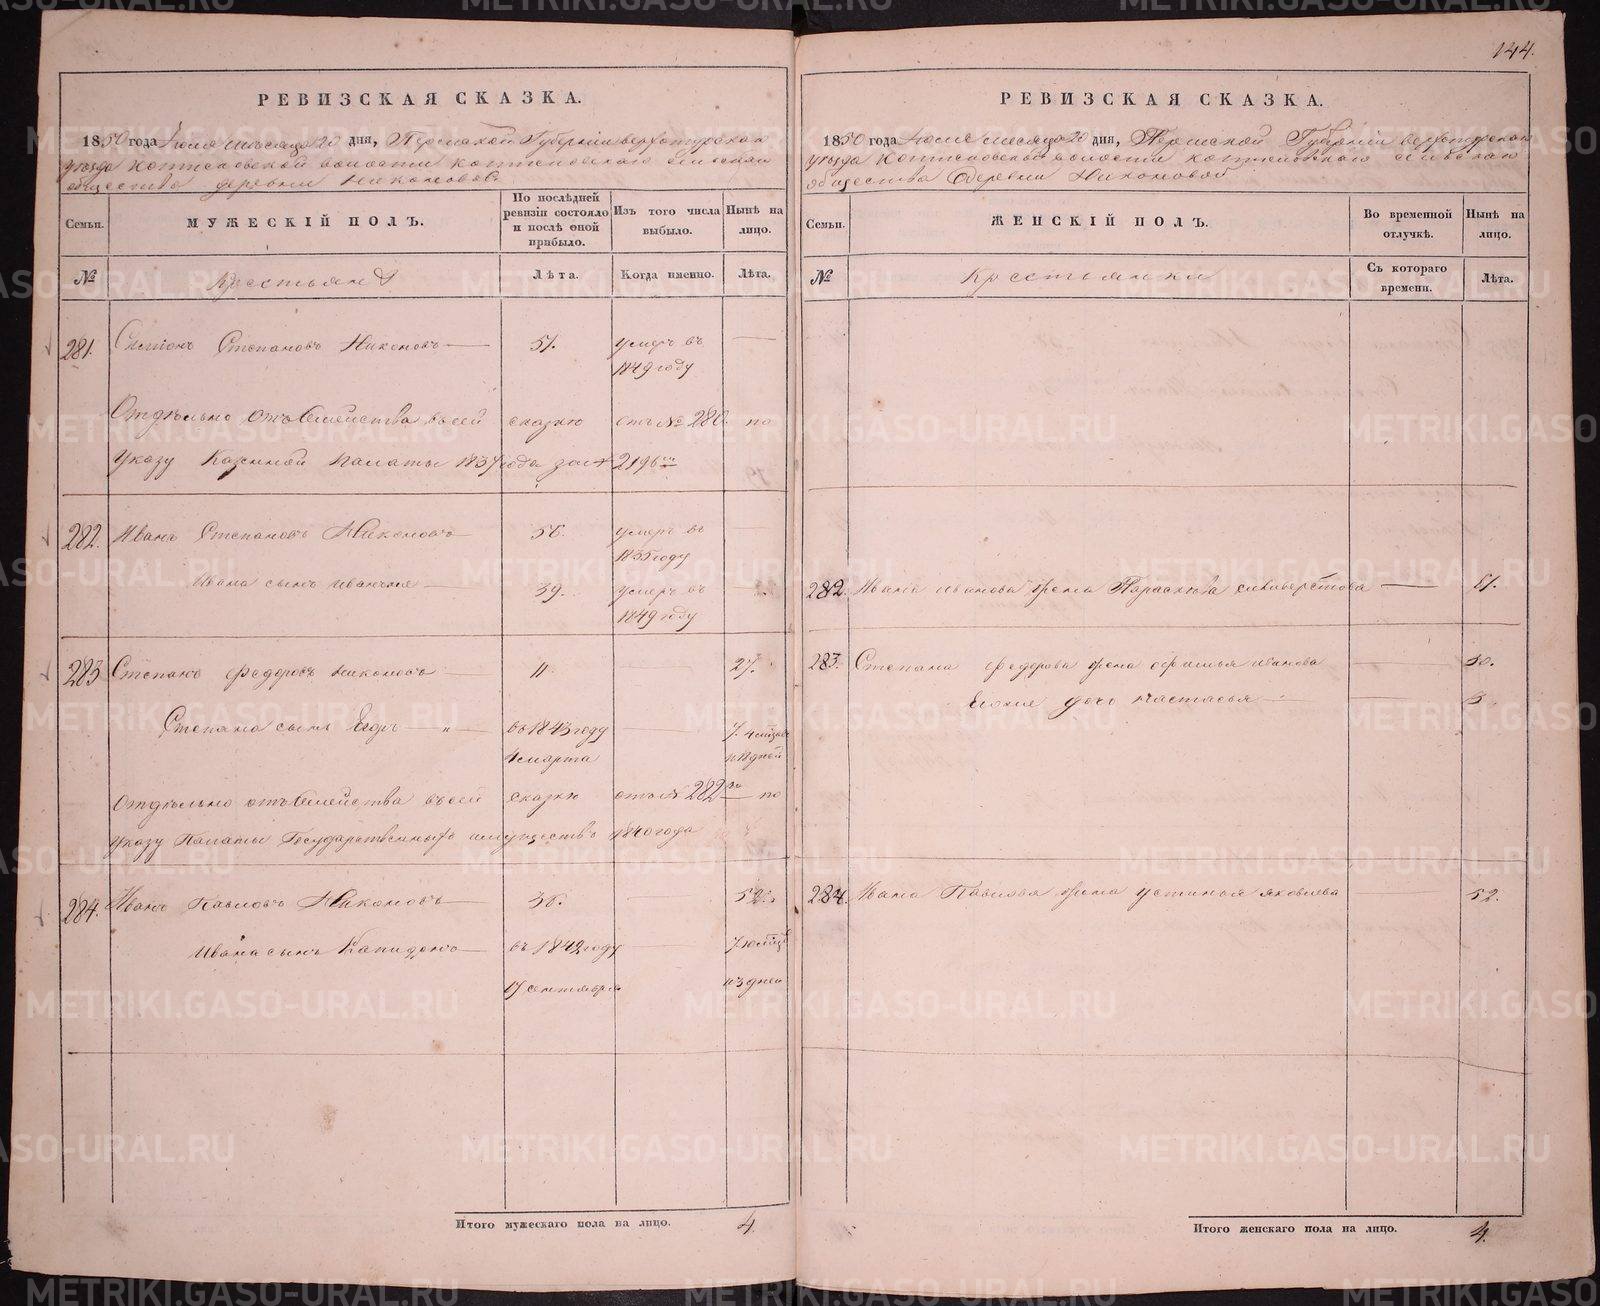 144.
РЕВИЗСКАЯ СКАЗКА.
1850 года Июля месяца 20 дня, Пермской Губернiи верхотурскаго
уезда коптеловской волости коптеловскаго сельскаго
общества деревни Никоновой
Семьи.
МУЖЕСКІЙ ПОЛЪ.
По послѣдней ревизіи состояло и послѣ оной прибыло.
Изъ того числа выбыло.
Нынѣ на лицо.
№
Крестьяне
Лѣта.
Когда именно.
Лѣта.
281. Степановъ Никоновъ 51. умеръ въ
1849 году
Отдѣльно отъ Семейства въ сей сказкѣ отъ № 280. по
указу Казенной Палаты 1837 года за № 2196
282. Иванъ Степановъ Никоновъ 56. умеръ въ
1835 году
Ивана сынъ Иванъ 39. умеръ въ
1849 году
283 Степанъ Федоровъ Никоновъ 11 27.
Степана сынъ Егоръ " въ 1843 году 7. 4 мѣсяц
4 марта и дней
Отдѣльно отъ Семейства въ сей сказкѣ отъ № 282 по
указу Палаты Государственныхъ имуществъ 1840 года
284. Иванъ Павловъ Никоновъ 36. 52.
Ивана сынъ Капидонъ въ 1842 году 7
17 сентября и 3 дней
Итого мужескаго пола на лицо. 4.
РЕВИЗСКАЯ СКАЗКА.
1850 года Июля месяца 20 дня, Пермской Губернiи верхотурскаго
уезда коптеловской волости коптеловскаго сельскаго
общества Деревни Никоновой
Семьи.
ЖЕНСКІЙ ПОЛЪ.
Во временной отлучкѣ.
Нынѣ на лицо.
№
Крестьянки
Съ котораго времени.
Лѣта.
282. Ивана иванова жена Параскова селиверстова 51.
283. Степана федорова жена офимья иванова 30.
дочь настасья 3.
284. Ивана Павлова жена устинья яковлева 52.
Итого женскаго пола на лицо. 4.
METRIKI.GASO-URAL.RU